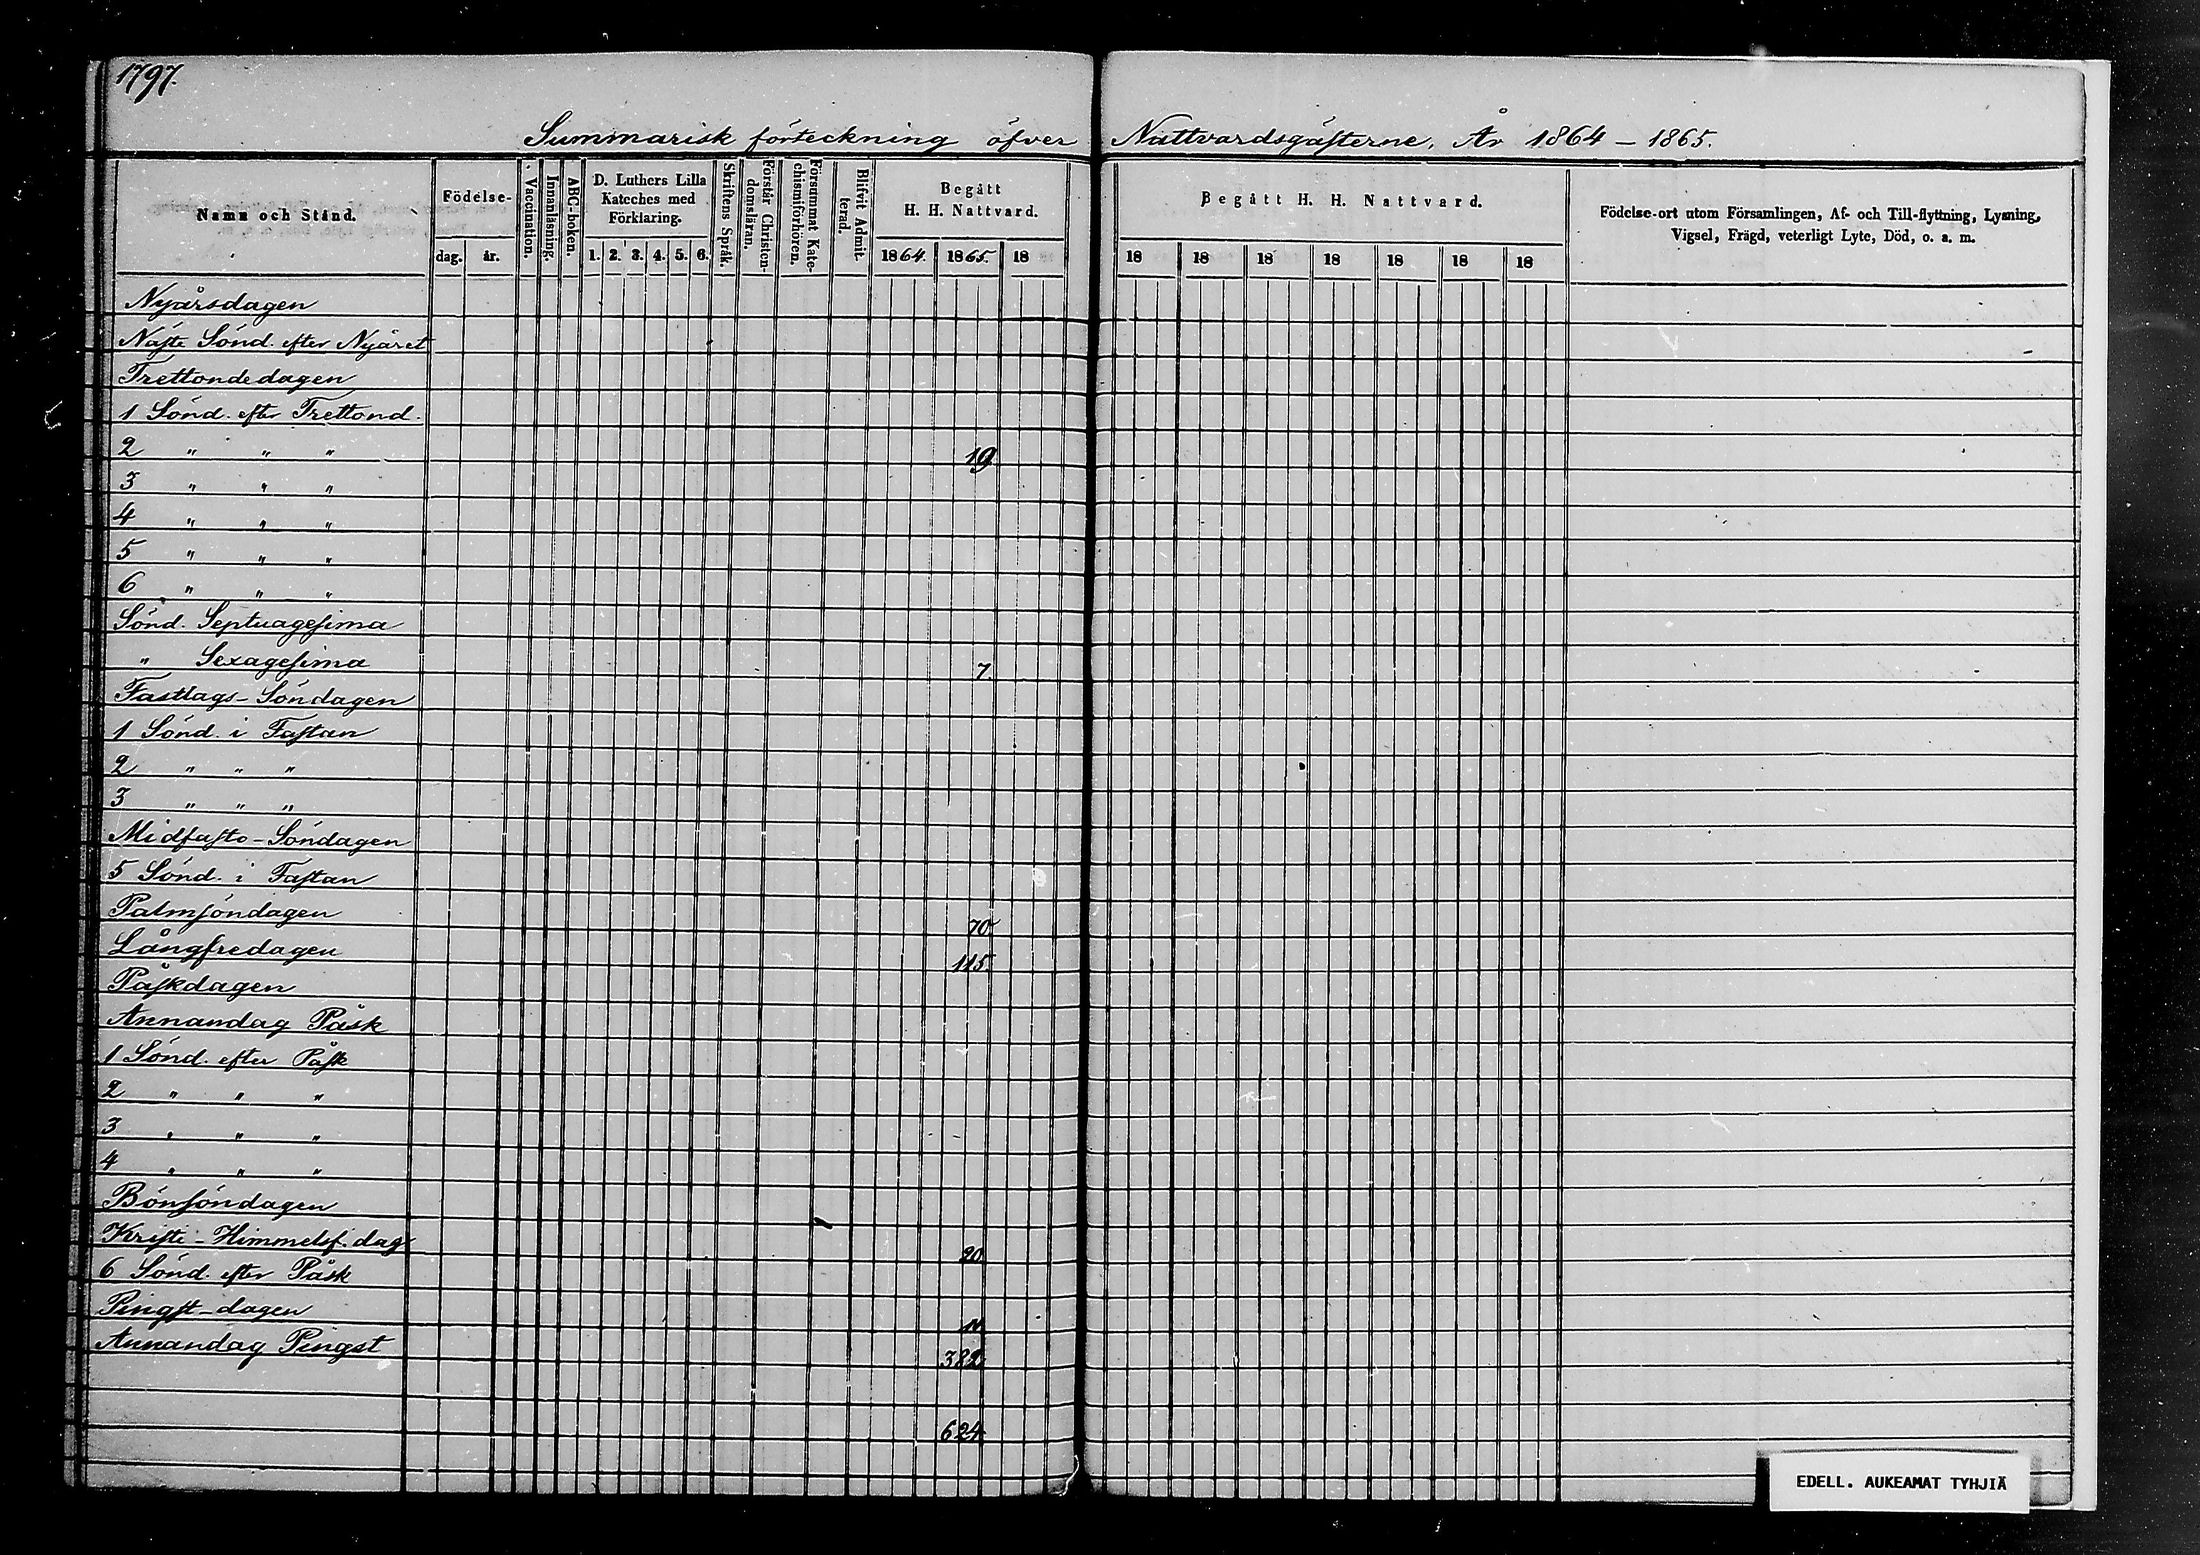 1797.
Summarisk förteckning öfver Nattvardsgästerne, År 1864 – 1865.
Namn och Stånd.
Födelse-
dag. år.
Vaccination.
Innanläsning.
ABC-boken.
D. Luthers Lilla
Kateches med
Förklaring.
1. 2. 3. 4. 5. 6.
Skriftens Språk.
Förstår Christen-
domsläran.
Försummat Kate-
chismiförhören.
Blifvit Admit-
terad.
Begått
H. H. Nattvard.
1864. 1865. 18
Begått H. H. Nattvard.
18 18 18 18 18 18 18
Födelse-ort utom Församlingen, Af- och Till-flyttning, Lysning,
Vigsel, Frägd, veterligt Lyte, Död, o. s. m.
Nyårsdagen
Näste Sönd. efter Nyåret
Trettondedagen
1 Sönd. efter Trettond.
2 " " " 19
3 " " "
4 " " "
5 " " "
6 " " "
Sönd. Septuagesima
" Sexagesima 7.
Fastlags-Söndagen
1 Sönd. i Fastan
2 " " "
3 " " "
Midfasto-Söndagen
5 Sönd. i Fastan
Palmsöndagen 70.
Långfredagen 115.
Påskdagen
Annandag Påsk
1 Sönd. efter Påsk
2 " " "
3 " " "
4 " " "
Bönsöndagen
Kristi-Himmelsf. dag 20
6 Sönd. efter Påsk
Pingst-dagen
Annandag Pingst 382
624
EDELL. AUKEAMAT TYHJIÄ